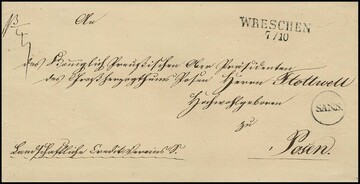 An
WRESCHEN
7/10
das Königlich Preußischen Ober Präsidenten
des Großherzogthums Posen Herrn Flottwell
Hochwohlgeboren
zu
SANS.
Posen.
Landschaftliche Credit Vereins S.